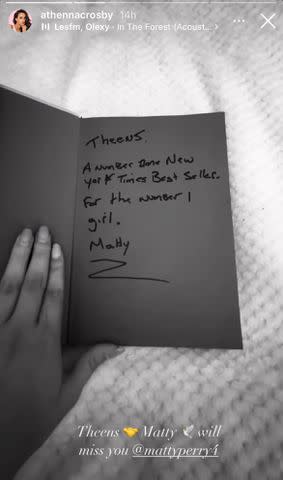 athennacrosby 14h
Lesfm, Olexy · In The Forest (Acoust...
Theens,
A Number One New
York Times Best Seller.
For the number 1
girl.
Matty
Theens 🤝 Matty 🕊️ will
miss you @mattyperry4